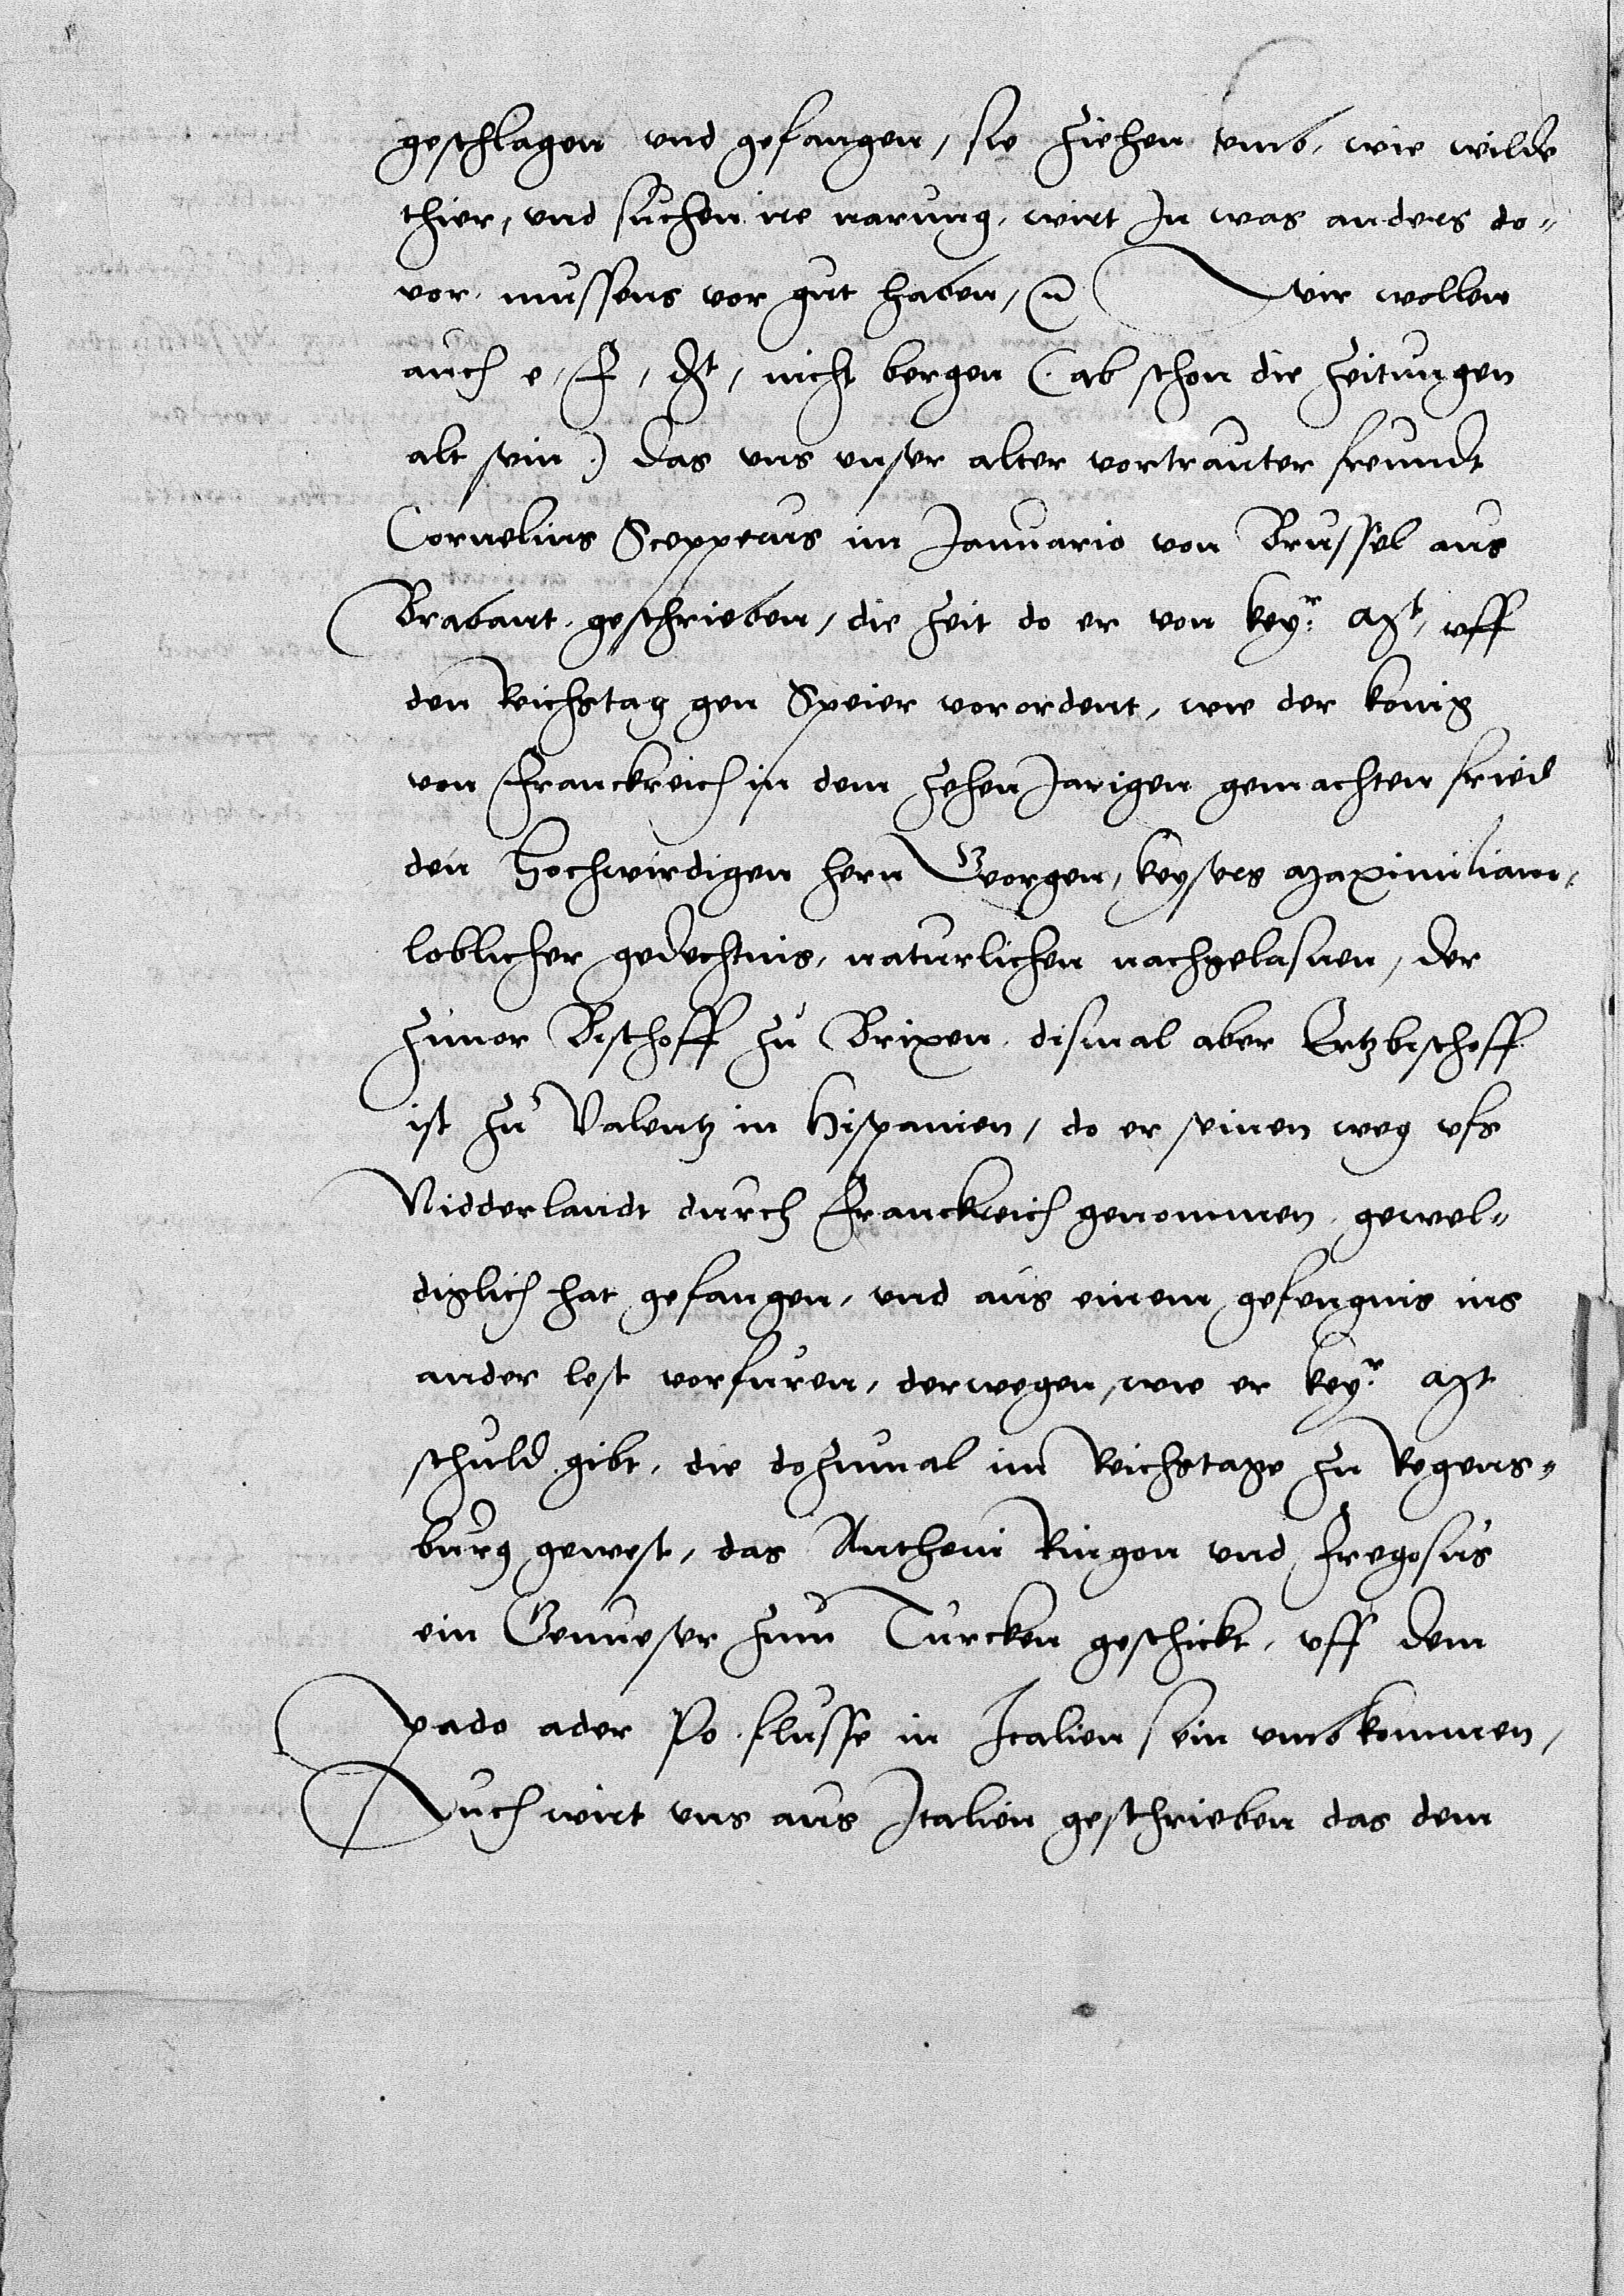 geschlagen und gefangen, sie ziehen umb, wie wilde
thier, und suchen ire narung, wirt In was anders do-
vor, mussens vor gut haben, Wir wollen
auch e, f, dt, nicht bergen (ab schon die zeitungen
alt sein) das uns unser alter vortrauter freundt
Cornelius Scepperus im Januario von Brussel aus
Brabant geschrieben, die zeit do er von keyr. Mt, uff
den Reichstag gen Speier vorordent, wie der konig
von Franckreich in dem zehen Jarigen gemachten fried
den Hochwirdigen hern Georgen, keysers Maximiliani,
loblicher gedechtnis, naturlichen nachgelasnen, der
zuvor Bischoff zu Brixen, dismal aber Ertzbischoff
ist zu Valentz in Hispanien, do er seinen weg ufs
Nidderlandt durch Franckreich genommen, gewel-
diglich hat gefangen, und aus einem gefengnis ins
ander lest vorfuren, derwegen, wie er keyr. Mt
schuld gibt, die dozumal im Reichstage zu Regens-
burg gewest, das Antheni Ringon und Fregosus
ein Genueser zum Turcken geschickt, uff dem
pado ader Po flusse in Italien sein umbkommen,
Auch wirt uns aus Italien geschrieben das dem